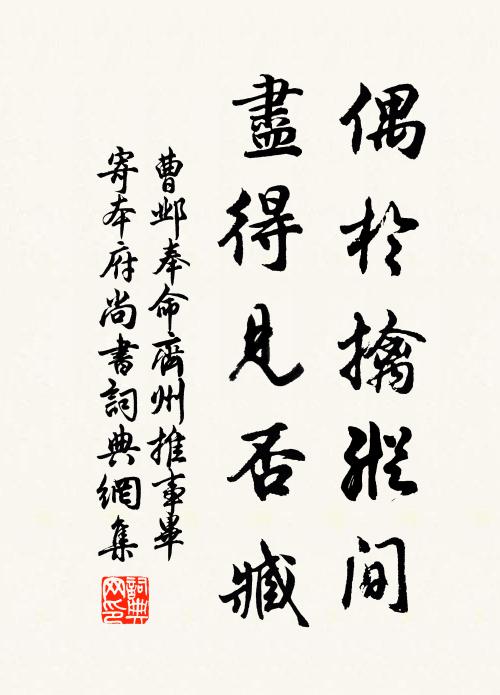 偶於擒縱間
盡得見否臧
曹邺奉命齊州推事畢
寄本府尚書詞典網集
詞典网印